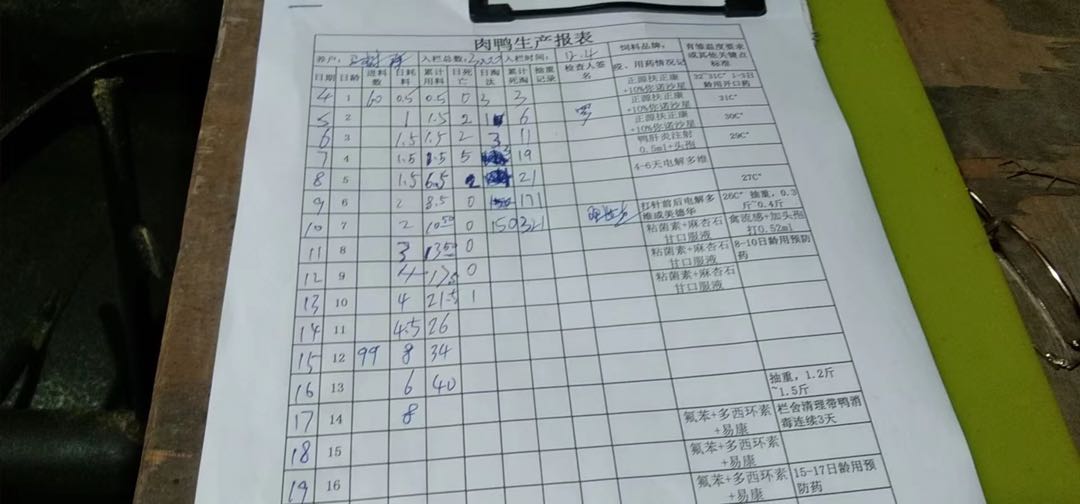 肉鸭生产报表
养户: 入栏总数: 入栏时间: 12.4 饲料品牌, 有雏温度要求
日期 日龄 进料数 日耗料 累计用料 日死亡 日淘汰 累计死淘 抽重记录 检查人签名 疫、用药情况记 或其他关键点标准
4 1 60 0.5 0.5 0 3 3 正源扶正康+10%依诺沙星 32~31C° 1-3日龄用开口药
5 2 1 1.5 2 6 正源扶正康+10%依诺沙星 31C°
6 3 1.5 2 3 11 正源扶正康+10%依诺沙星 30C°
7 4 1.5 5 19 鸭肝炎注射0.5ml+头孢 29C°
8 5 1.5 6.5 2 21 4-6天电解多维
9 6 2 8.5 0 171 27C°
10 7 2 10.50 0 150 321 打针前后电解多维或美德华 26C° 抽重, 0.3斤~0.4斤
11 8 3 13.50 0 粘菌素+麻杏石甘口服液 禽流感+加头孢打0.52ml
12 9 4 0 粘菌素+麻杏石甘口服液 8-10日龄用预防药
13 10 4 21.5 1 粘菌素+麻杏石甘口服液
14 11 4.5 26
15 12 99 8 34
16 13 6 40 抽重, 1.2斤~1.5斤
17 14 8 氟苯+多西环素+易康 栏舍清理带鸭消毒连续3天
18 15 氟苯+多西环素+易康
19 16 氟苯+多西环素+易康 15-17日龄用预防药